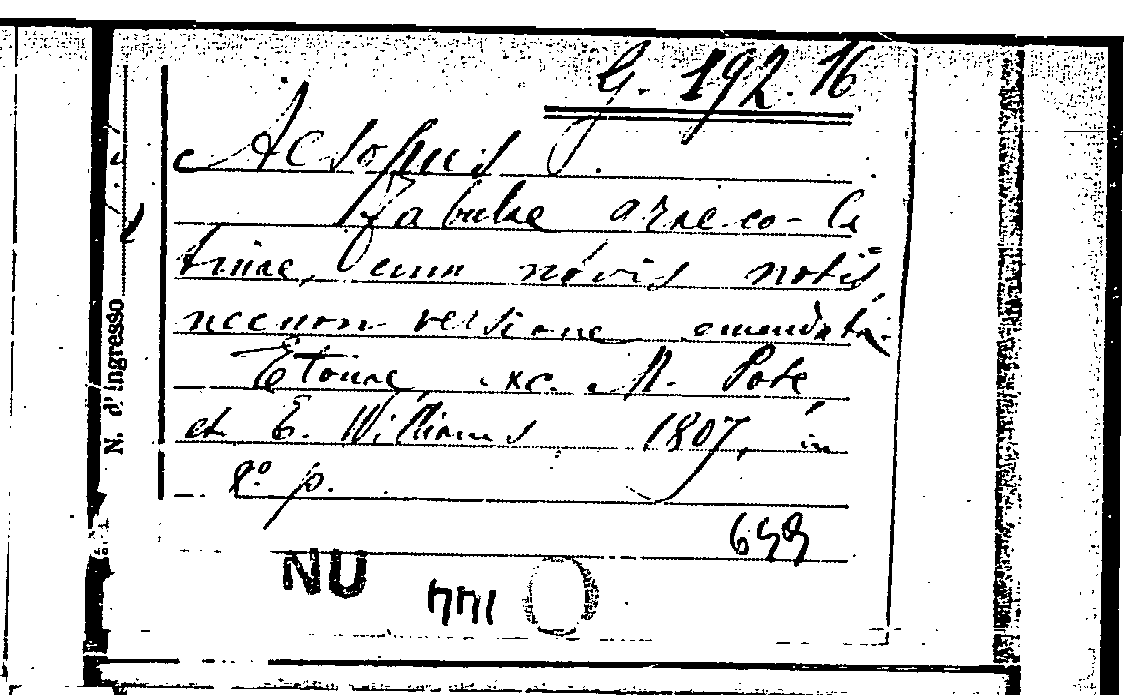 G. 192. 16
Aesopus
Fabulae graeco-la
tinae, cum novis notis
necnon versione emendata.
Etonae, exc. M. Pote
et E. Williams, 1807, in
8.° p.
N. d'Ingresso
NU